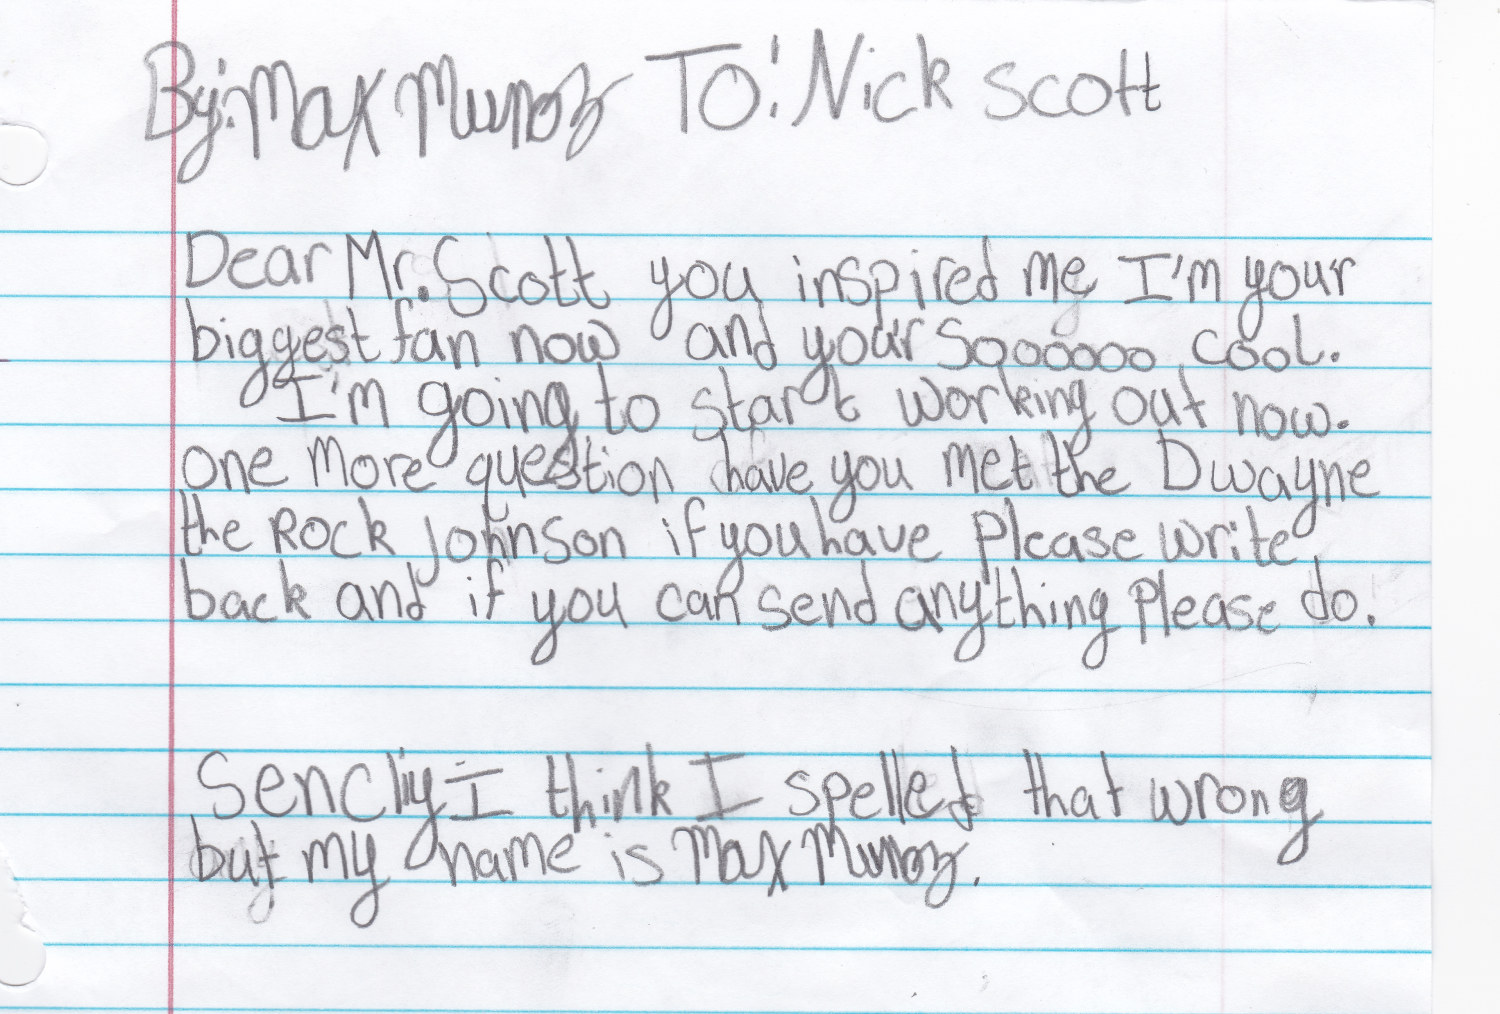 By: Max Munoz TO: Nick Scott
Dear Mr. Scott you inspired me I'm your
biggest fan now and your Sooooooo cool.
I'm going to start working out now.
one more question have you met the Dwayne
the Rock Johnson if you have Please write
back and if you can send anything Please do.
Sencliy I think I spelled that wrong
but my name is Max Munoz.